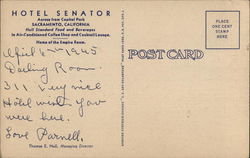 HOTEL SENATOR
Across from Capitol Park
SACRAMENTO, CALIFORNIA
Hull Standard Food and Beverages
in Air-Conditioned Coffee Shop and Cocktail Lounge.
Home of the Empire Room.
POST CARD
PLACE
STAMP
HERE
April 1945
Darling Room
311 very nice
Hotel wish you
were here.
Love Parnell.
Thomas E. Hull, Managing Director